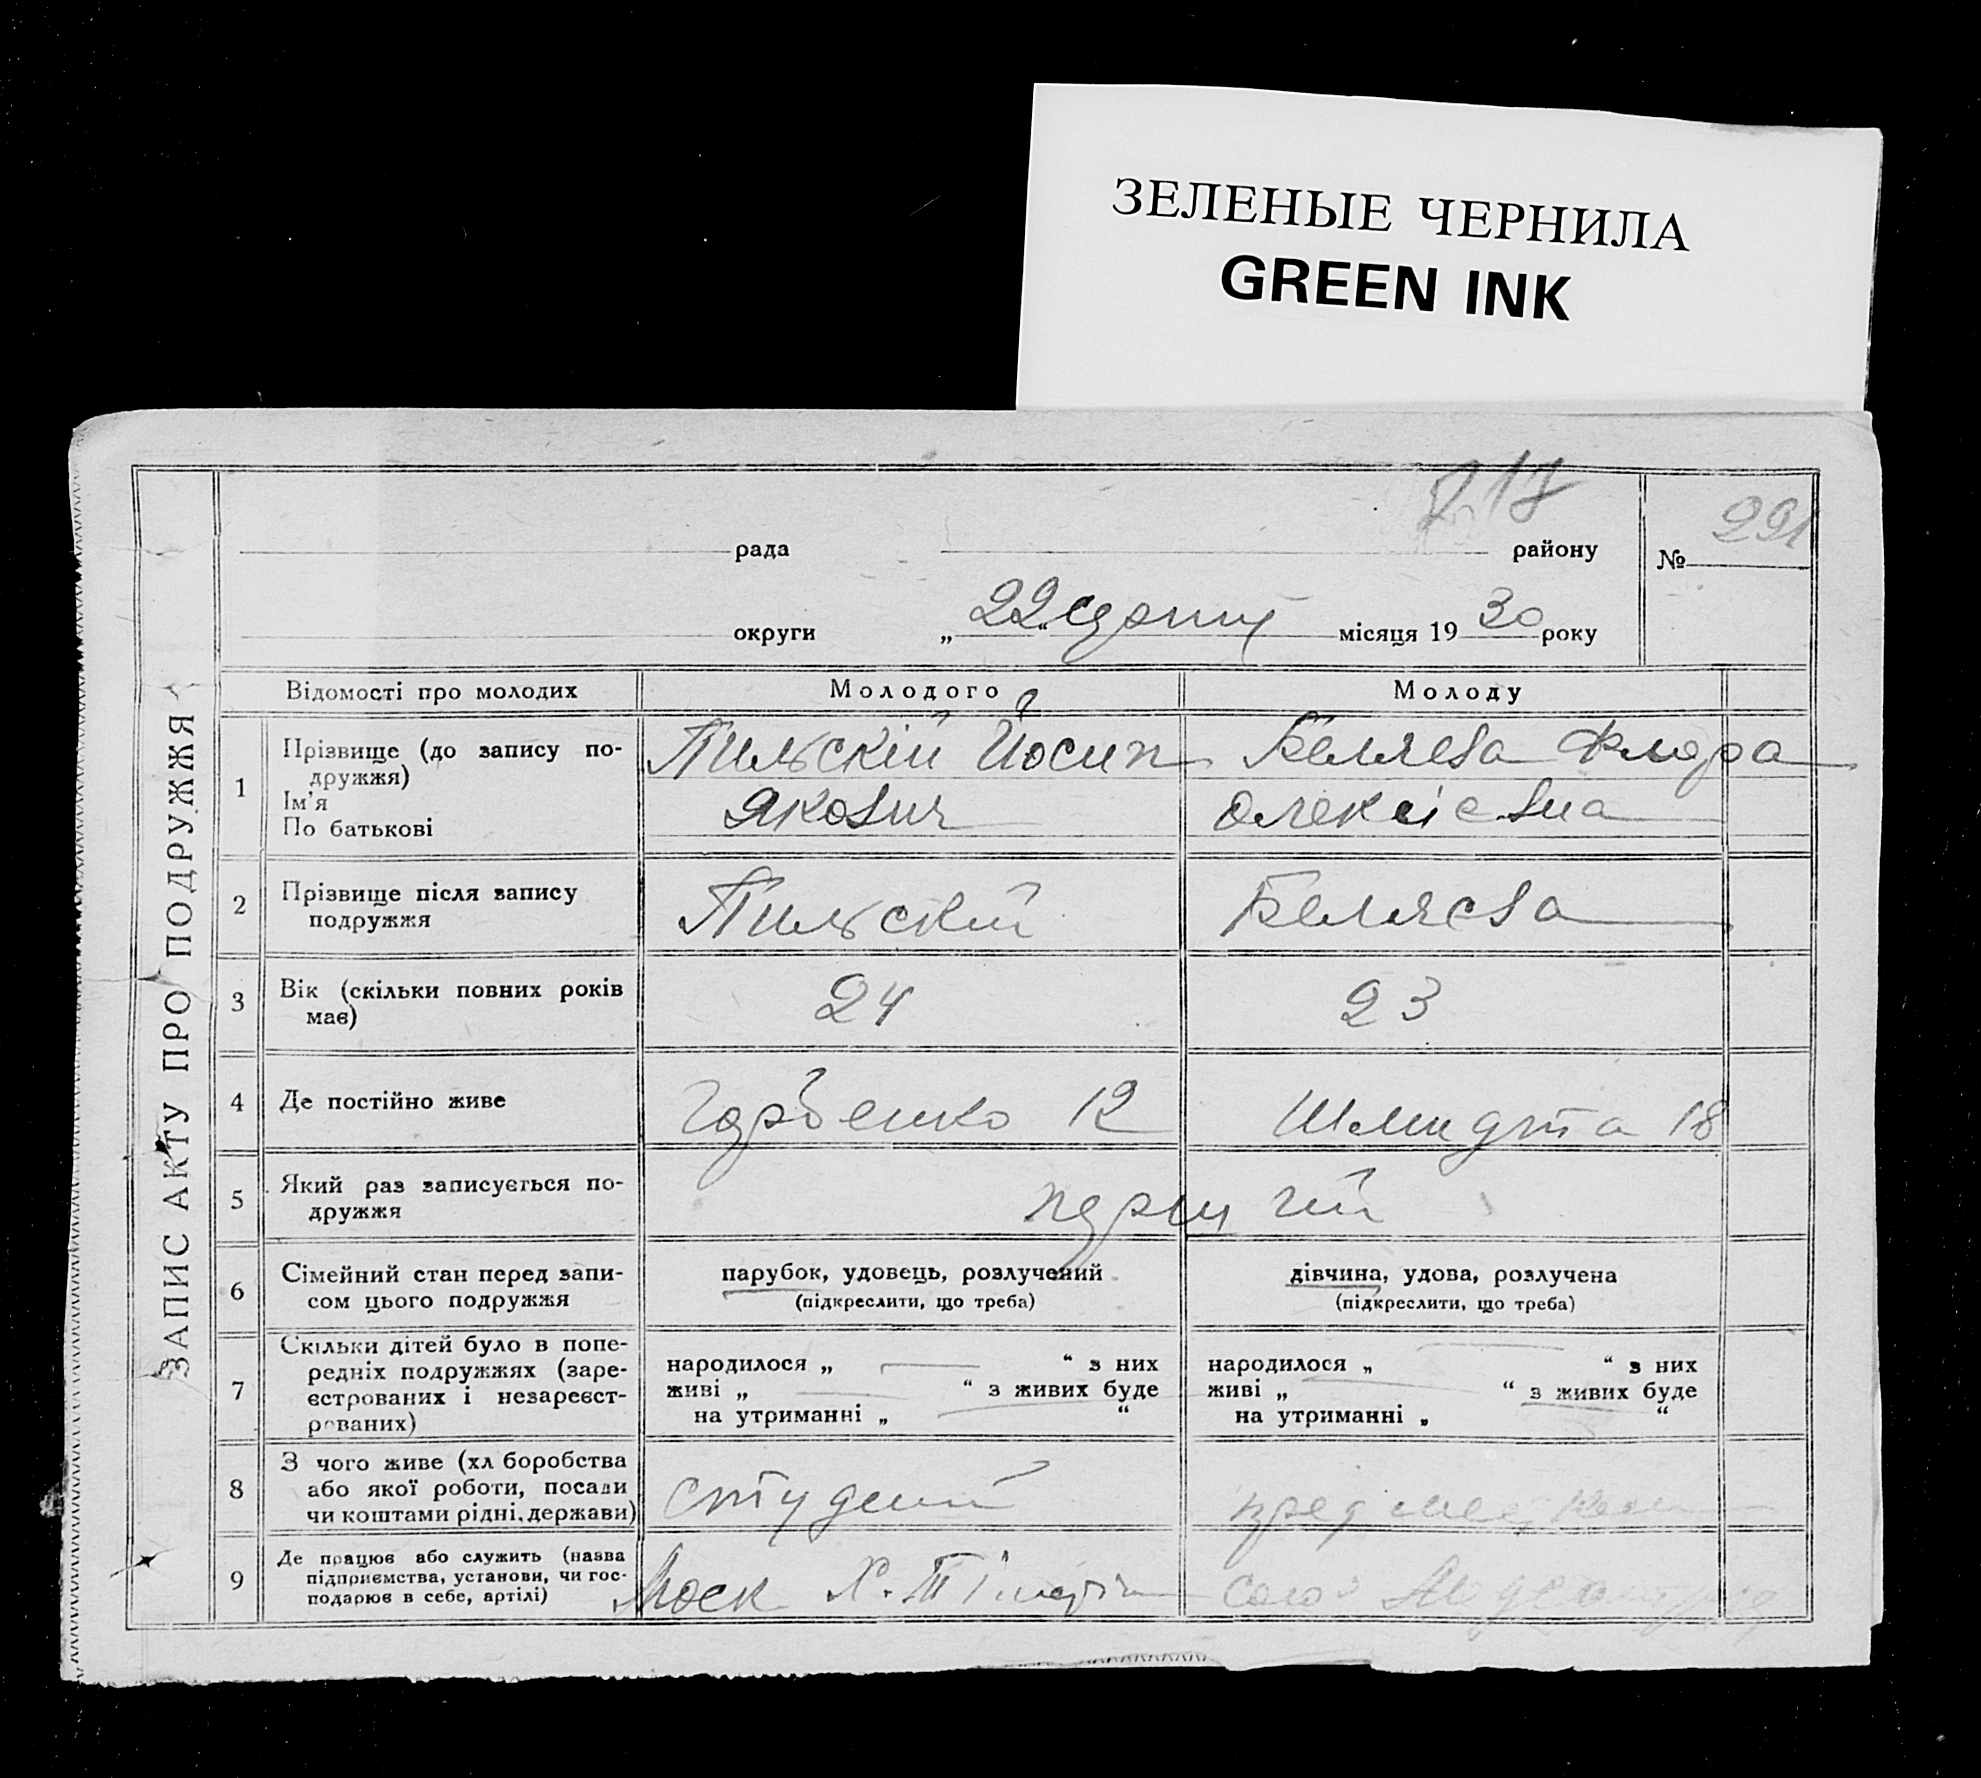 ЗЕЛЕНЫЕ ЧЕРНИЛА
GREEN INK
ЗАПИС АКТУ ПРО ПОДРУЖЖЯ
217
рада району № 291
округи „22“ серпня місяця 1930 року
Відомості про молодих Молодого Молоду
1 Прізвище (до запису по-
дружжя)
Ім'я
По батькові
Пильскій Йосип
Якович
Беляева Флора
Олексієвна
2 Прізвище після запису
подружжя
Пильскій
Беляєва
3 Вік (скільки повних років
має)
24
23
4 Де постійно живе
Горбенко 12
Шмидта 18
5 Який раз записується по-
дружжя
перший
6 Сімейний стан перед запи-
сом цього подружжя
парубок, удовець, розлучений
(підкреслити, що треба)
дівчина, удова, розлучена
(підкреслити, що треба)
7 Скільки дітей було в попе-
редніх подружжях (заре-
єстрованих і незареєст-
рованих)
народилося „ “ з них
живі „ “ з живих буде
на утриманні „ “
народилося „ “ з них
живі „ “ з живих буде
на утриманні „ “
8 З чого живе (хліборобства
або якої роботи, посади
чи коштами рідні, держави)
студент
9 Де працює або служить (назва
підприємства, установи, чи гос-
подарює в себе, артілі)
Моск Х.